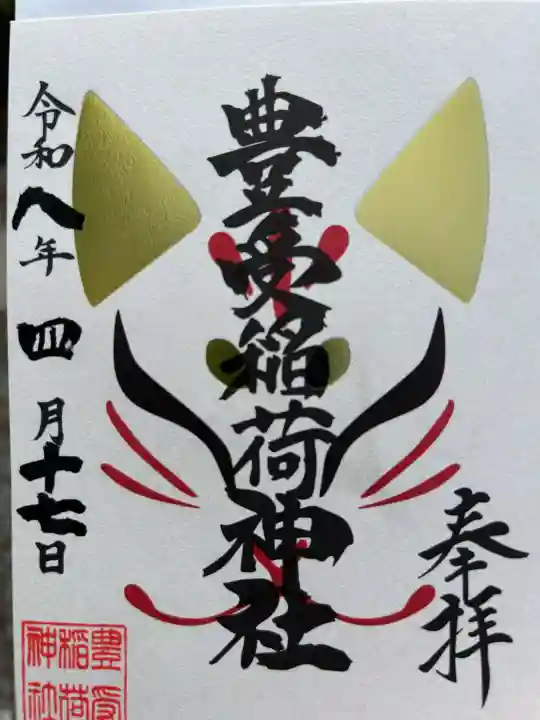 奉拝
豊受稲荷神社
令和八年四月十七日
豊受
稲荷
神社